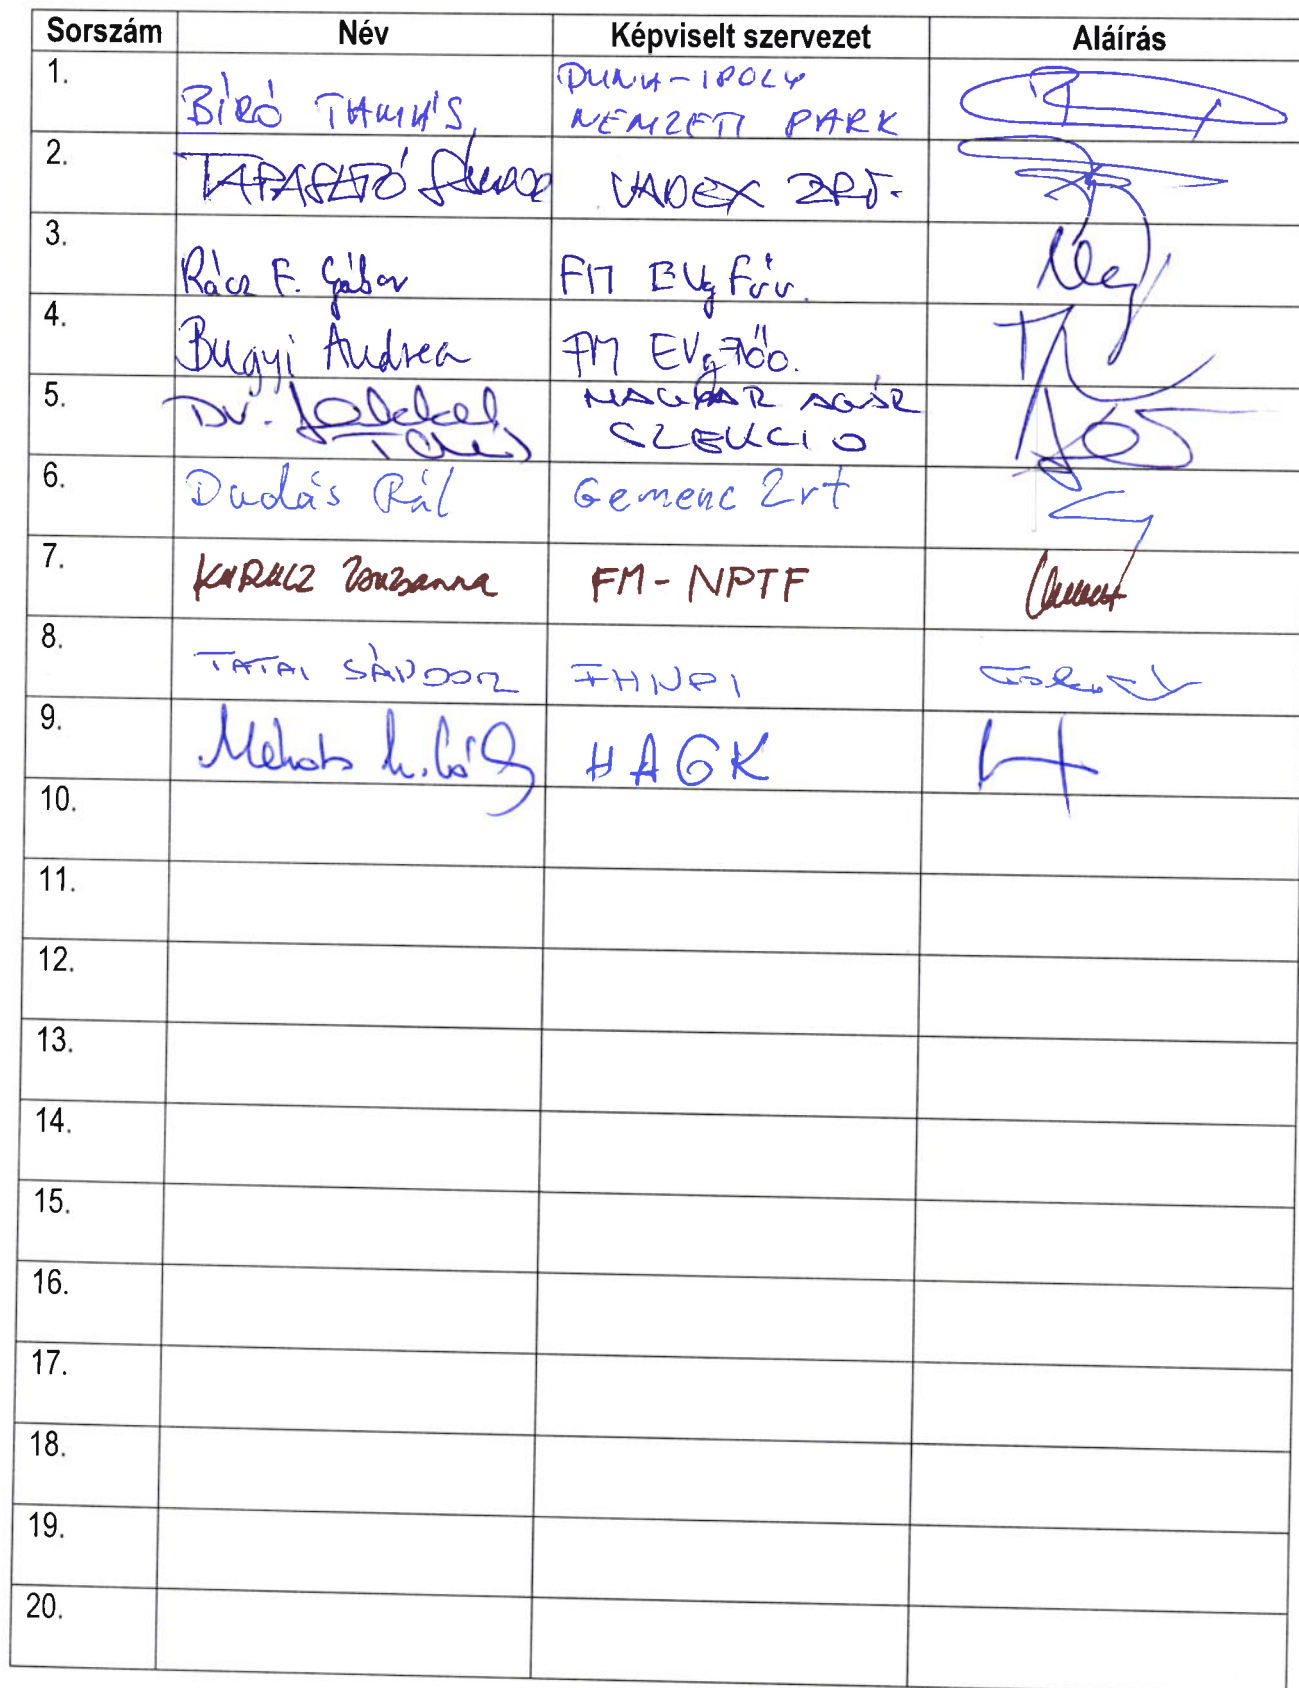 Sorszám Név Képviselt szervezet Aláírás
1. BÍRÓ TAMÁS DUNA-IPOLY
NEMZETI PARK
2. TAPASZTÓ VADEX ZRT.
3. Rácz F. Gábor FM EVg Főv.
4. Bugyi Andrea FM EVgFőo.
5. Dr. MAGYAR AGÁR
SZEKCIÓ
6. Dudás Pál Gemenc Zrt
7. KURUCZ Zsuzsanna FM-NPTF
8. TATAI SÁNDOR FHNPI
9. HAGK
10.
11.
12.
13.
14.
15.
16.
17.
18.
19.
20.